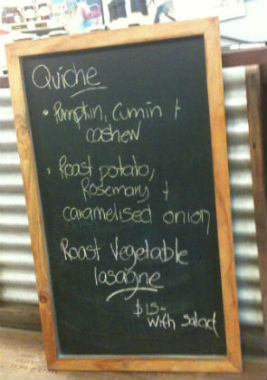 Quiche
• Pumpkin, Cumin +
cashew
• Roast potato,
Rosemary +
caramelised onion
Roast Vegetable
lasagne
$15-
With Salad